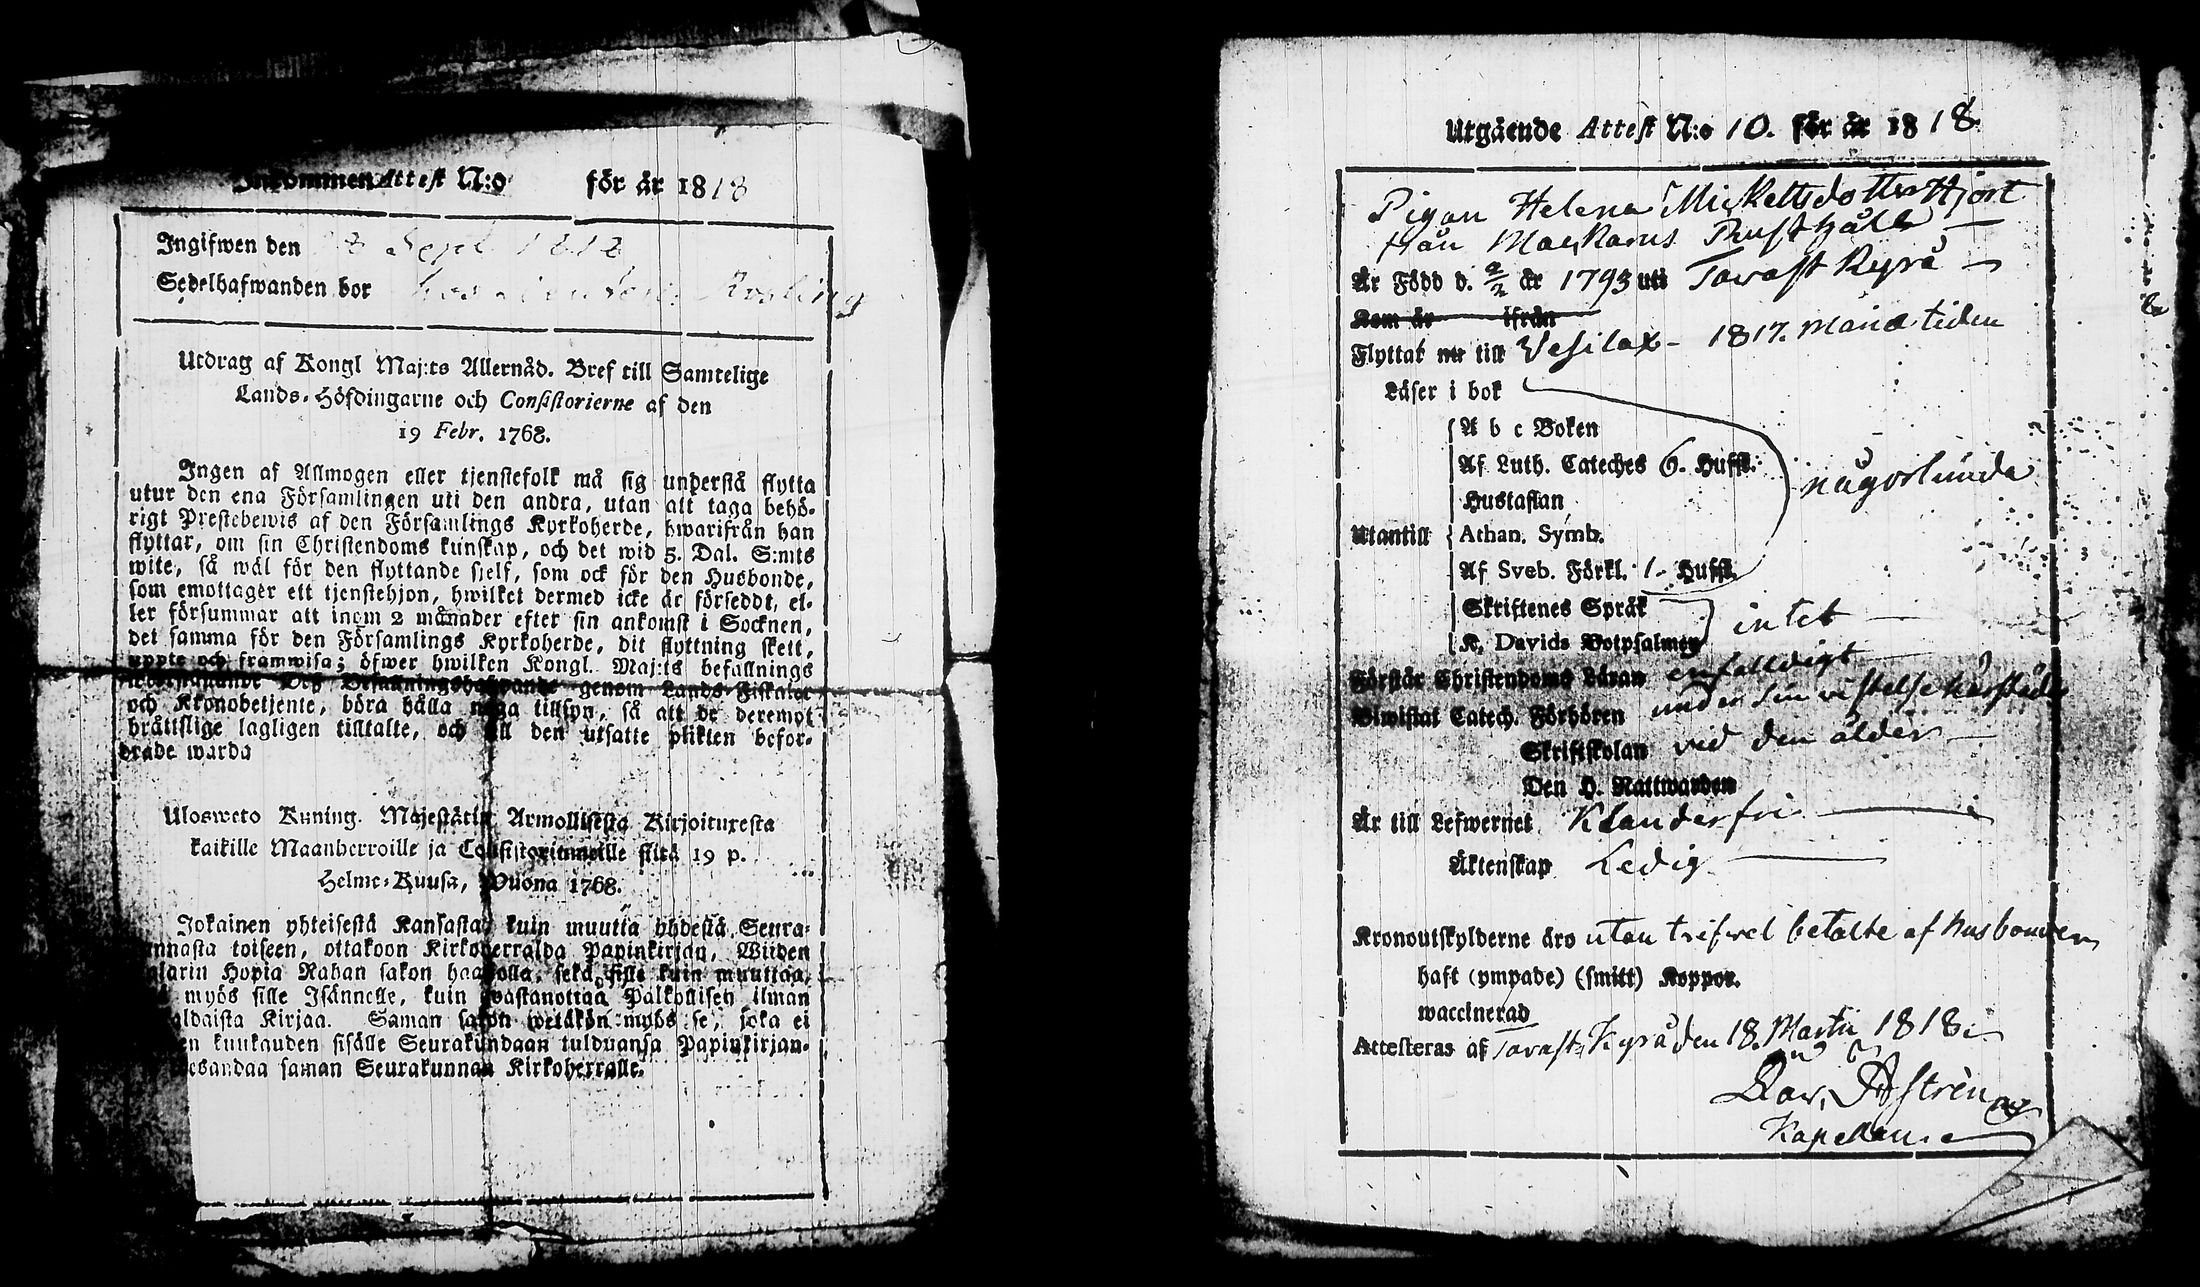 Inkommen Attest N:o för år 1818
Ingifwen den 8 Sept 1818
Sedelhafwanden bor hos
Utdrag af Kongl Maj:ts Allernåd. Bref till Samtelige
Lands-Höfdingarne och Consistorierne af den
19 Febr. 1768.
Ingen af Allmogen eller tjenstefolk må sig understå flytta
utur den ena Församlingen uti den andra, utan att taga behö-
rigt Prestebewis af den Församlings Kyrkoherde, hwarifrån han
flyttar, om sin Christendoms kunskap, och det wid 5. Dal. S:mts
wite, så wäl för den flyttande sjelf, som ock för den Husbonde,
som emottager ett tjenstehjon, hwilket dermed icke är försedt, el-
ler försummar att inom 2 månader efter sin ankomst i Socknen,
det samma för den Församlings Kyrkoherde, dit flyttning skett,
uppte och framwisa; öfwer hwilken Kongl. Maj:ts befallnings
Befallningshafwande genom Lands Fiskaler
och Kronobetjente, böra hålla noga tillsyn, så att de deremot
bråttslige lagligen tilltalte, och till den utsatte plikten befor-
drade warda
Ulosweto Kuning. Majestätin Armollisesta Kirjoituxesta
kaikille Maanherroille ja Consistoriumeille siitä 19 p.
Helme-Kuusa, Wuona 1768.
Jokainen yhteisestä Kansasta, kuin muutta yhdestä Seura-
kunnasta toiseen, ottakoon Kirkoherralda Papinkirjan, Wiiden
talarin Hopia Rahan sakon haastolla, sekä sille kuin muuttaa,
myös sille Isännelle, kuin wastanottaa Palkollisen ilman
Saman sakon wetäkön myös se, joka ei
kuukauden sisälle Seurakundaan tulduansa Papinkirjan-
saman Seurakunnan Kirkoherralle.
Utgående Attest N:o 10. för år 1818
Pigan Helena Mickelsdotter Hjort
från Mackarus Rusthåll
Är Född d. 2/2 år 1793 uti Tavast Kyrå
Kom år ifrån
Flyttat nu till Vesilax 1817. Marie tiden
Läser i bok
A b c Boken
Af Luth. Cateches 6. Huffst.
någorlunda
Hustaflan
Utantill Athan. Symb.
Af Sveb. Förkl. 1. Huffst.
Skriftenes Språk
intet
K. Davids Botpsalmer
Förstår Christendoms Läran enfalldigt
Biwistat Catech. Förhören under sin vistelse härstädes
Skriftskolan ved den ålder
Den H. Nattwarden
Är till Lefwernet Klanderfri
Äktenskap Ledig
Kronoutskylderne äro utan tvifvel betalte af husbonden
haft (ympade) (smitt) Koppor.
waccinerad
Attesteras af Tavast Kyrå den 18. Martii 1818
Dav, Åstrén
Kapellan